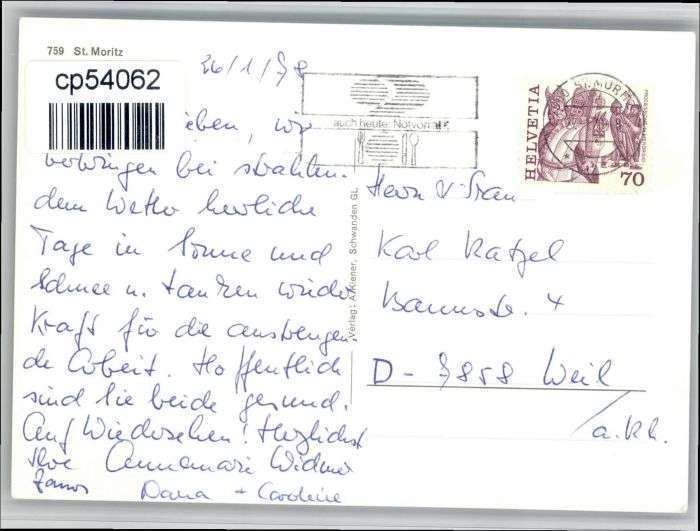 759 St. Moritz
26/1/78
cp54062
ieben, wir
verbringen bei strahlen-
dem Wetter herrliche
Tage in Sonne und
Schnee u. tanken wieder
Kraft für die anstrengen-
de Arbeit. Hoffentlich
sind Sie beide gesund.
Auf Wiedersehen! Herzlichst
Ihre Annemarie Widmer
Dana + Caroline
auch heute: Notvorrat
HELVETIA
70
Verlag: A. Kiener, Schwanden GL
Herrn & Frau
Karl Ratzel
Bannstr. 4
D - 7858 Weil
a. Rh.